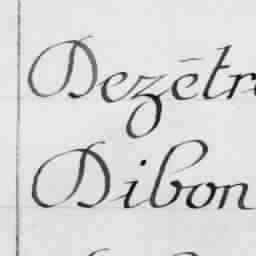 Dezētr
Dibon